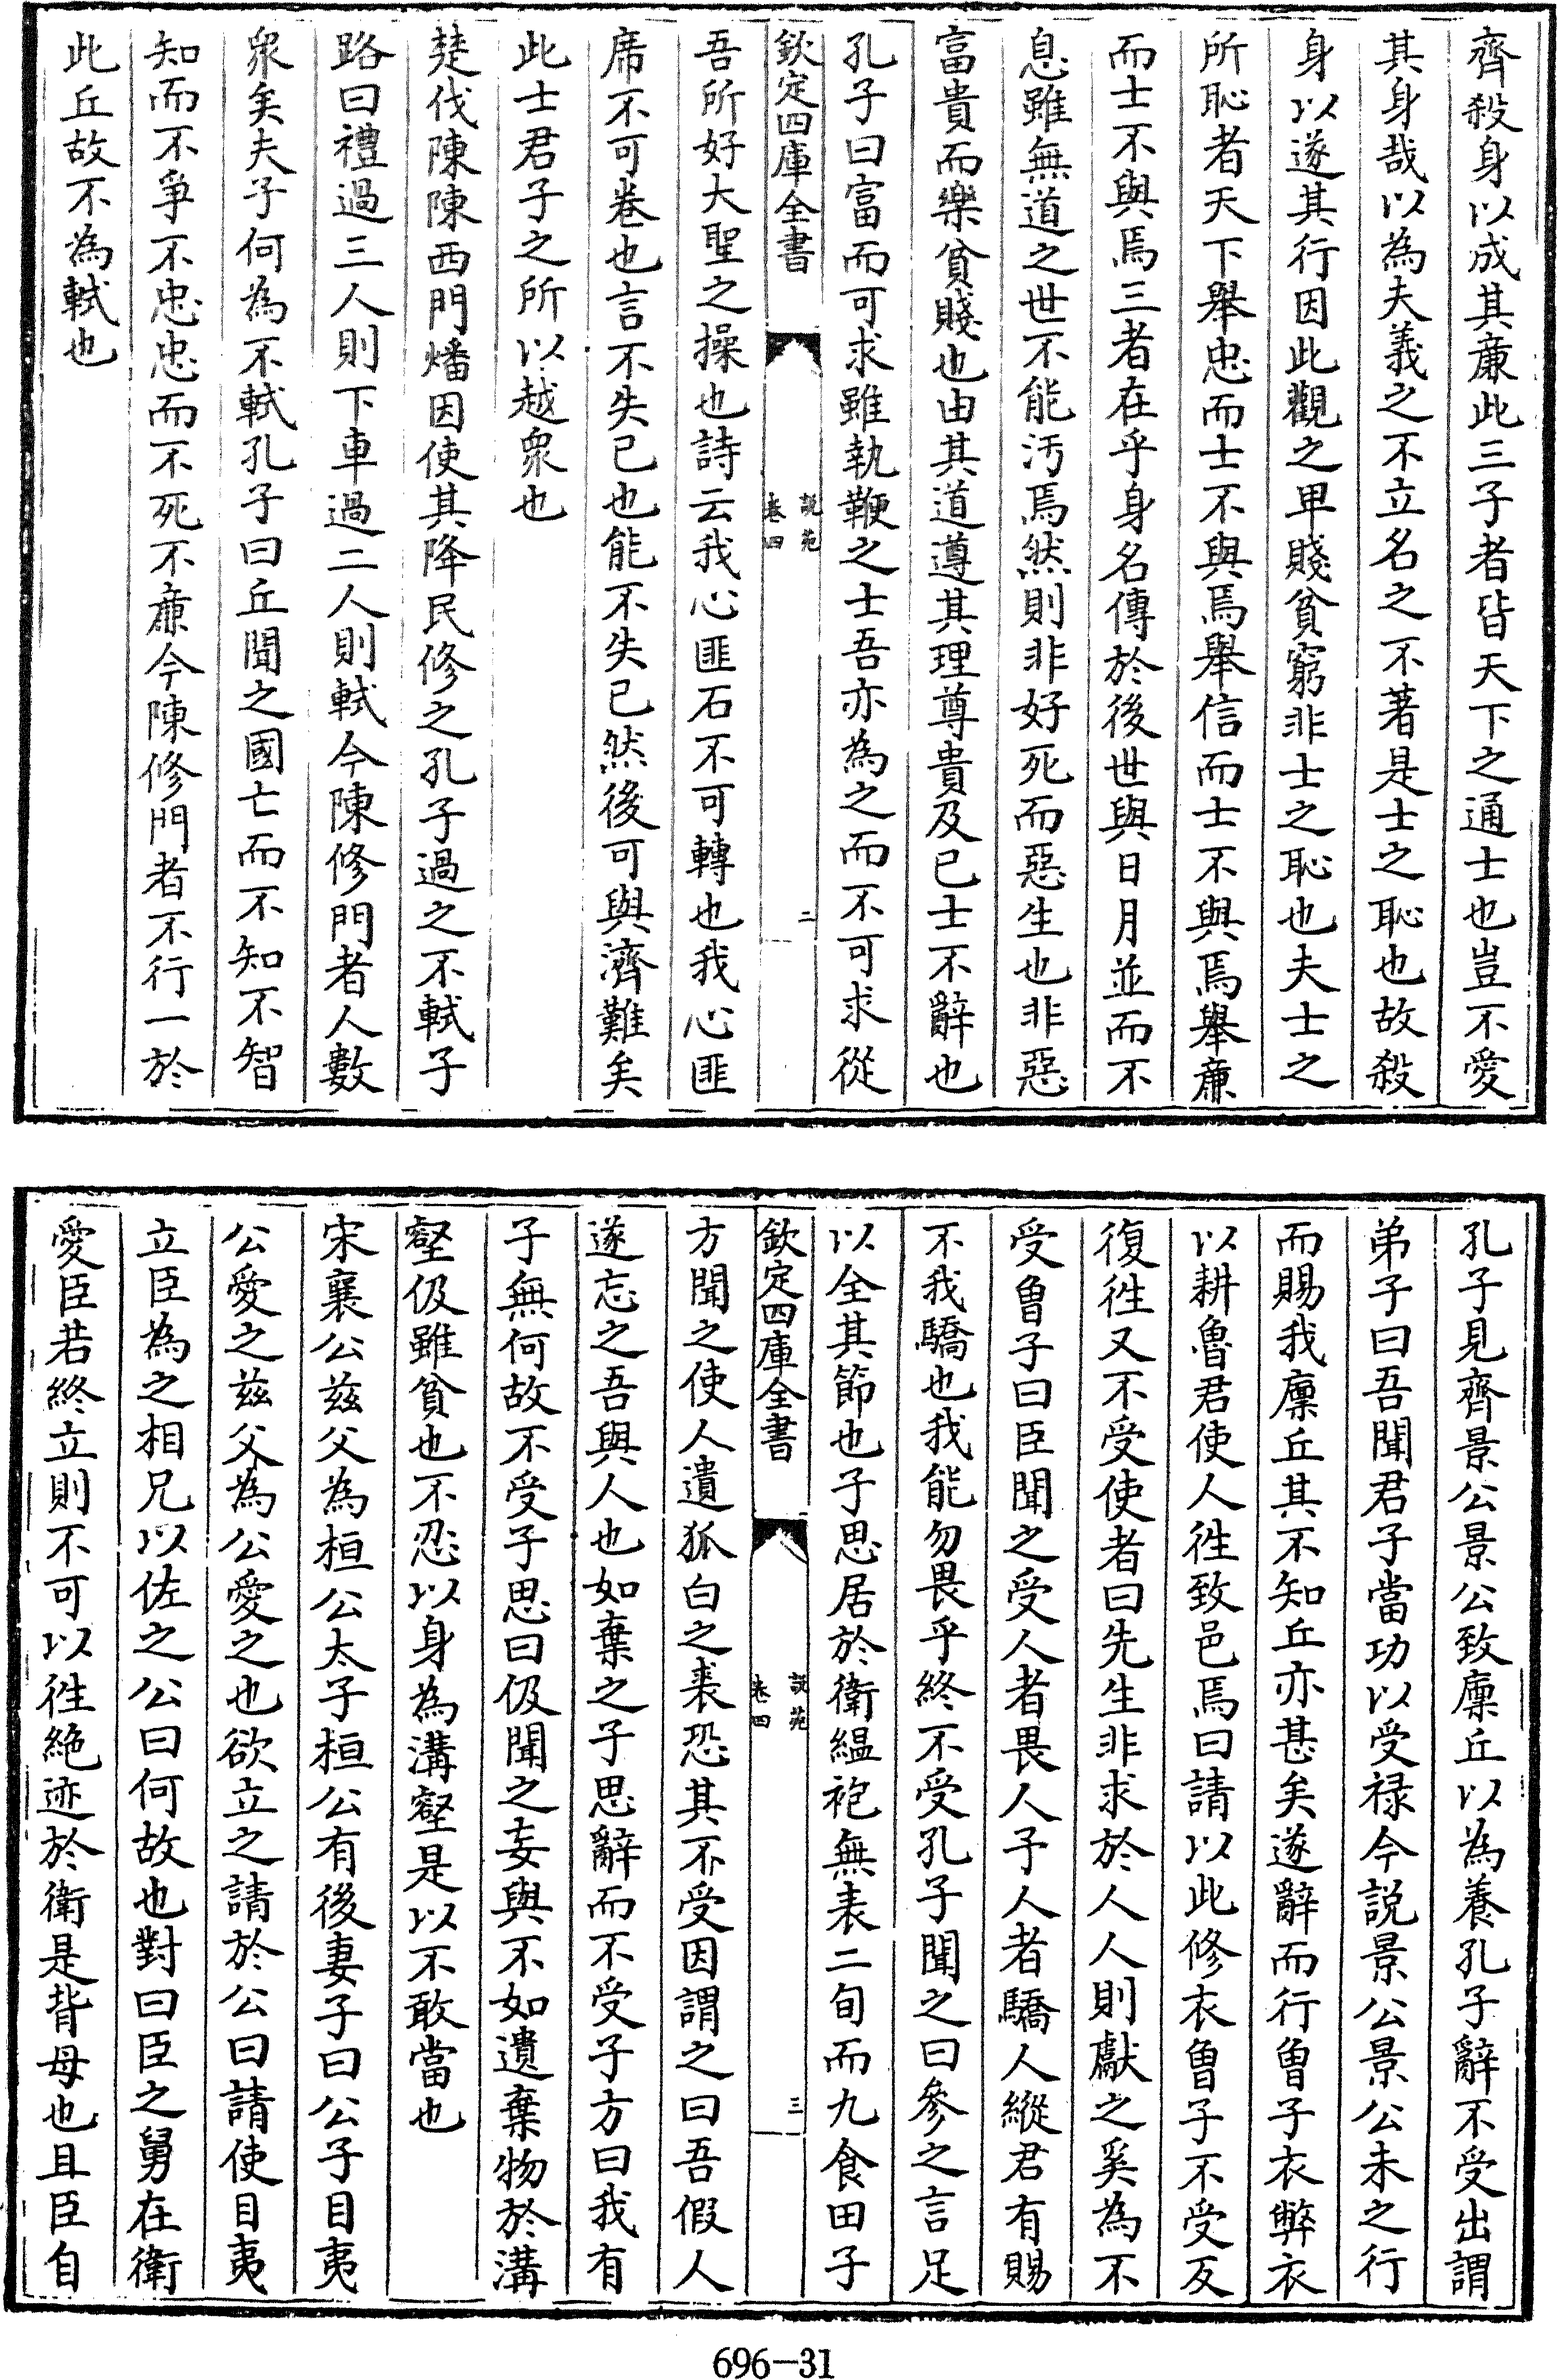 齊殺身以成其亷此三子者皆天下之通士也豈不愛
其身哉以為夫義之不立名之不著是士之恥也故殺
身以遂其行因此觀之卑賤貧窮非士之恥也夫士之
所恥者天下舉忠而士不與焉舉信而士不與焉舉亷
而士不與焉三者在乎身名傳於後世與日月並而不
息雖無道之世不能汚焉然則非好死而惡生也非惡
富貴而樂貧賤也由其道遵其理尊貴及已士不辭也
孔子曰富而可求雖執鞭之士吾亦為之而不可求從
欽定四庫全書
説苑
卷四
二
吾所好大聖之操也詩云我心匪石不可轉也我心匪
席不可卷也言不失已也能不失已然後可與濟難矣
此士君子之所以越衆也
楚伐陳陳西門燔因使其降民修之孔子過之不軾子
路曰禮過三人則下車過二人則軾今陳修門者人數
衆矣夫子何為不軾孔子曰丘聞之國亡而不知不智
知而不爭不忠忠而不死不亷今陳修門者不行一於
此丘故不為軾也
孔子見齊景公景公致廩丘以為養孔子辭不受出謂
弟子曰吾聞君子當功以受禄今説景公景公未之行
而賜我廩丘其不知丘亦甚矣遂辭而行曾子衣弊衣
以耕魯君使人往致邑焉曰請以此修衣曾子不受反
復往又不受使者曰先生非求於人人則獻之奚為不
受曾子曰臣聞之受人者畏人予人者驕人縱君有賜
不我驕也我能勿畏乎終不受孔子聞之曰參之言足
以全其節也子思居於衛緼袍無表二旬而九食田子
欽定四庫全書
説苑
卷四
三
方聞之使人遺狐白之裘恐其不受因謂之曰吾假人
遂忘之吾與人也如棄之子思辭而不受子方曰我有
子無何故不受子思曰伋聞之妄與不如遺棄物於溝
壑伋雖貧也不忍以身為溝壑是以不敢當也
宋襄公兹父為桓公太子桓公有後妻子曰公子目夷
公愛之兹父為公愛之也欲立之請於公曰請使目夷
立臣為之相兄以佐之公曰何故也對曰臣之舅在衛
愛臣若終立則不可以往絶迹於衛是背母也且臣自
696-31